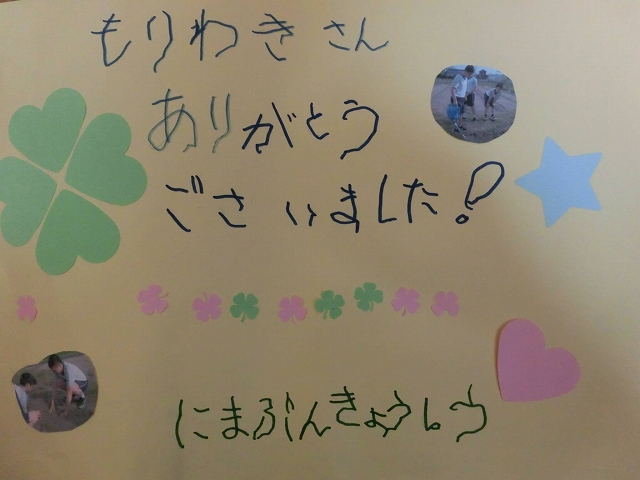 もりわき さん
ありがとう
ごさいました!
にまぶんきょうしつ